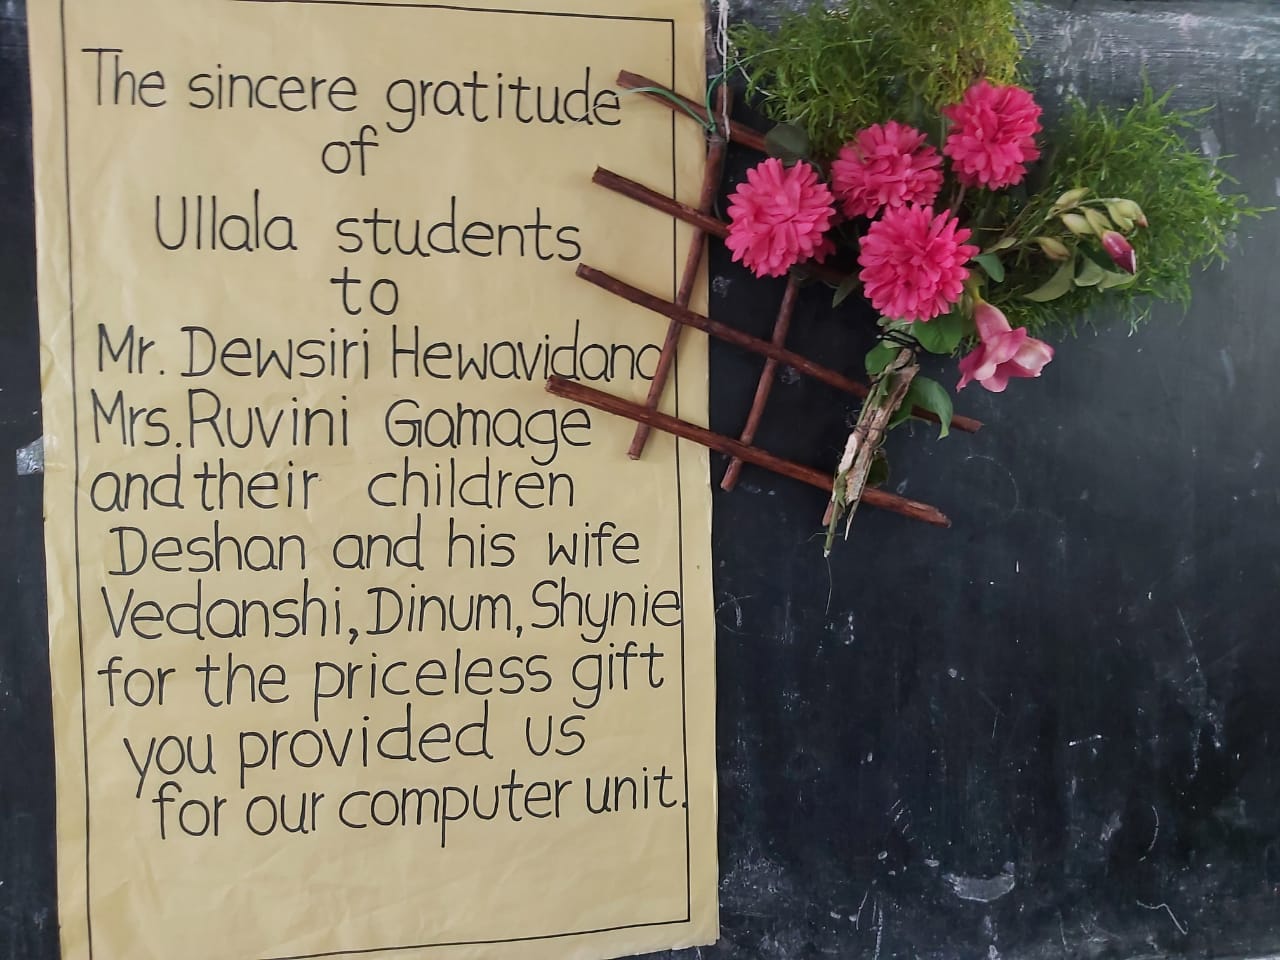 The sincere gratitude
of
Ullala students
to
Mr. Dewsiri Hewavidana
Mrs. Ruvini Gamage
and their children
Deshan and his wife
Vedanshi, Dinum, Shynie
for the priceless gift
you provided us
for our computer unit.